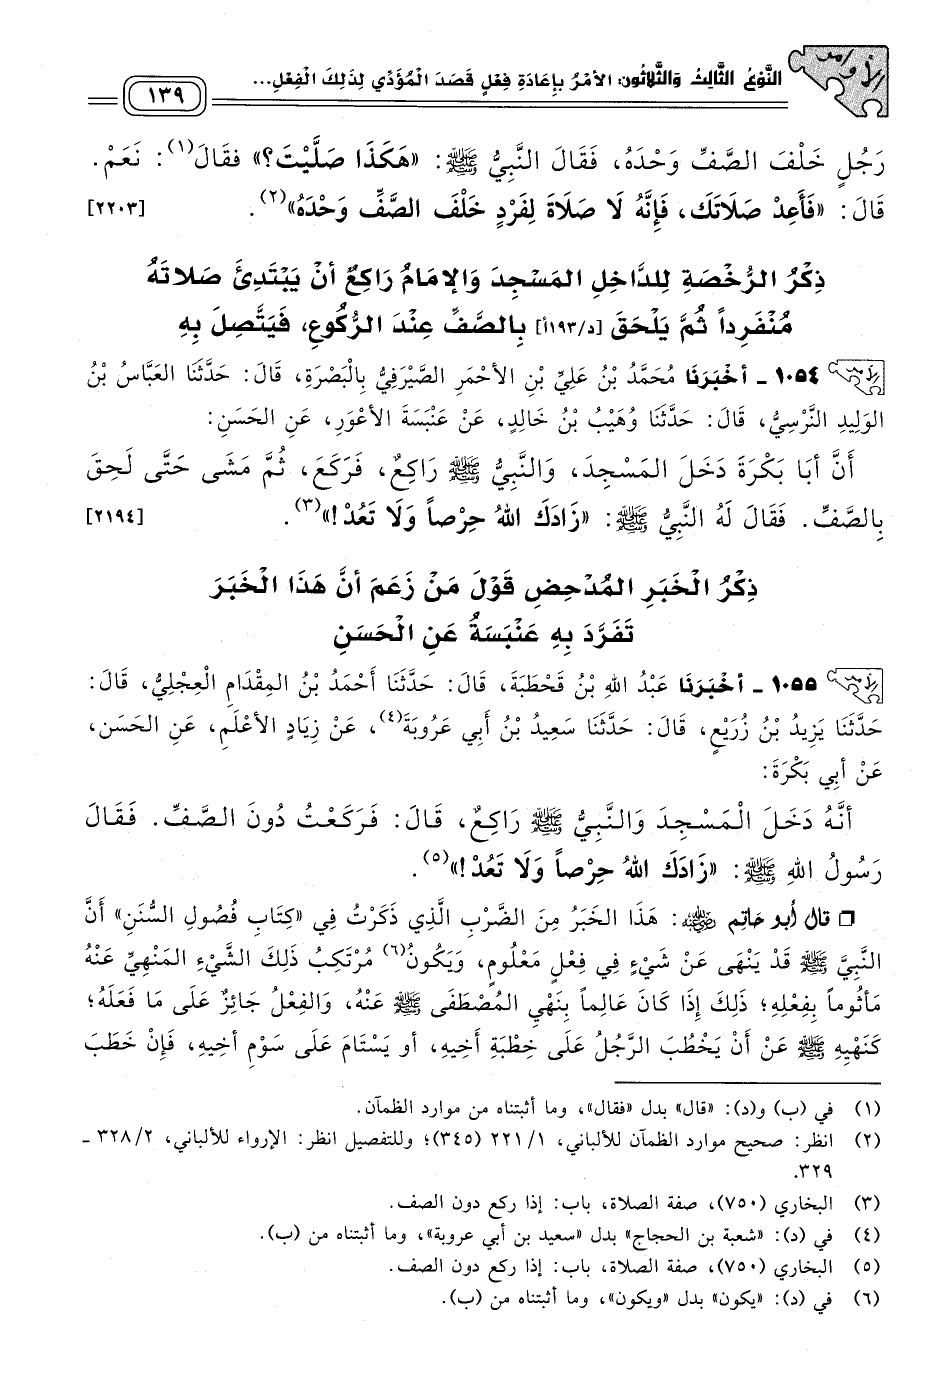 الأوامر
النَّوْعُ الثَّالِثُ وَالثَّلَاثُونَ: الأَمْرُ بِإِعَادَةِ فِعْلٍ قَصَدَ الْمُؤَدِّي لِذَلِكَ الْفِعْلِ...
١٣٩
رَجُلٍ خَلْفَ الصَّفِّ وَحْدَهُ، فَقَالَ النَّبِيُّ ﷺ: «هَكَذَا صَلَّيْتَ؟» فقَالَ(١): نَعَمْ.
قَالَ: «فَأَعِدْ صَلَاتَكَ، فَإِنَّهُ لَا صَلَاةَ لِفَرْدٍ خَلْفَ الصَّفِّ وَحْدَهُ»(٢). [٢٢٠٣]
ذِكْرُ الرُّخْصَةِ لِلدَّاخِلِ المَسْجِدَ وَالإمَامُ رَاكِعٌ أنْ يَبْتَدِئَ صَلاتَهُ
مُنْفَرِداً ثُمَّ يَلْحَقَ [د/١٩٣أ] بِالصَّفِّ عِنْدَ الرُّكُوعِ، فَيَتَّصِلَ بِهِ
الأوامر ١٠٥٤ ـ أخْبَرَنَا مُحَمَّدُ بْنُ عَلِيِّ بْنِ الأحْمَرِ الصَّيْرَفِيُّ بِالْبَصْرَةِ، قَالَ: حَدَّثَنَا العَبَّاسُ بْنُ
الوَلِيدِ النَّرْسِيُّ، قَالَ: حَدَّثَنَا وُهَيْبُ بْنُ خَالِدٍ، عَنْ عَنْبَسَةَ الأعْوَرِ، عَنِ الحَسَنِ:
أَنَّ أبَا بَكْرَةَ دَخَلَ المَسْجِدَ، وَالنَّبِيُّ ﷺ رَاكِعٌ، فَرَكَعَ، ثُمَّ مَشَى حَتَّى لَحِقَ
بِالصَّفِّ. فَقَالَ لَهُ النَّبِيُّ ﷺ: «زَادَكَ اللهُ حِرْصاً وَلَا تَعُدْ!»(٣). [٢١٩٤]
ذِكْرُ الْخَبَرِ المُدْحِضِ قَوْلَ مَنْ زَعَمَ أنَّ هَذَا الْخَبَرَ
تَفَرَّدَ بِهِ عَنْبَسَةُ عَنِ الْحَسَنِ
الأوامر ١٠٥٥ ـ أخْبَرَنَا عَبْدُ اللهِ بْنُ قَحْطَبَةَ، قَالَ: حَدَّثَنَا أَحْمَدُ بْنُ المِقْدَامِ الْعِجْلِيُّ، قَالَ:
حَدَّثَنَا يَزِيدُ بْنُ زُرَيْعٍ، قَالَ: حَدَّثَنَا سَعِيدُ بْنُ أبِي عَرُوبَةَ(٤)، عَنْ زِيَادٍ الأعْلَمِ، عَنِ الحَسَنِ،
عَنْ أبِي بَكْرَةَ:
أنَّهُ دَخَلَ الْمَسْجِدَ وَالنَّبِيُّ ﷺ رَاكِعٌ، قَالَ: فَرَكَعْتُ دُونَ الصَّفِّ. فَقَالَ
رَسُولُ اللهِ ﷺ: «زَادَكَ اللهُ حِرْصاً وَلَا تَعُدْ!»(٥).
□ قال أبو حاتم ﵁: هَذَا الْخَبَرُ مِنَ الضَّرْبِ الَّذِي ذَكَرْتُ فِي «كِتَابِ فُصُولِ السُّنَنِ» أَنَّ
النَّبِيَّ ﷺ قَدْ يَنْهَى عَنْ شَيْءٍ فِي فِعْلٍ مَعْلُومٍ، وَيَكُونُ(٦) مُرْتَكِبُ ذَلِكَ الشَّيْءِ المَنْهِيِّ عَنْهُ
مَأثُوماً بِفِعْلِهِ؛ ذَلِكَ إِذَا كَانَ عَالِماً بِنَهْيِ المُصْطَفَى ﷺ عَنْهُ، وَالفِعْلُ جَائِزٌ عَلَى مَا فَعَلَهُ؛
كَنَهْيِهِ ﷺ عَنْ أنْ يَخْطُبَ الرَّجُلُ عَلَى خِطْبَةِ أخِيهِ، أو يَسْتَامَ عَلَى سَوْمِ أخِيهِ، فَإِنْ خَطَبَ
(١) في (ب) و(د): «قال» بدل «فقال»، وما أثبتناه من موارد الظمآن.
(٢) انظر: صحيح موارد الظمآن للألباني، ٢٢١/١ (٣٤٥)؛ وللتفصيل انظر: الإرواء للألباني، ٣٢٨/٢ ـ
٣٢٩.
(٣) البخاري (٧٥٠)، صفة الصلاة، باب: إذا ركع دون الصف.
(٤) في (د): «شعبة بن الحجاج» بدل «سعيد بن أبي عروبة»، وما أثبتناه من (ب).
(٥) البخاري (٧٥٠)، صفة الصلاة، باب: إذا ركع دون الصف.
(٦) في (د): «يكون» بدل «ويكون»، وما أثبتناه من (ب).